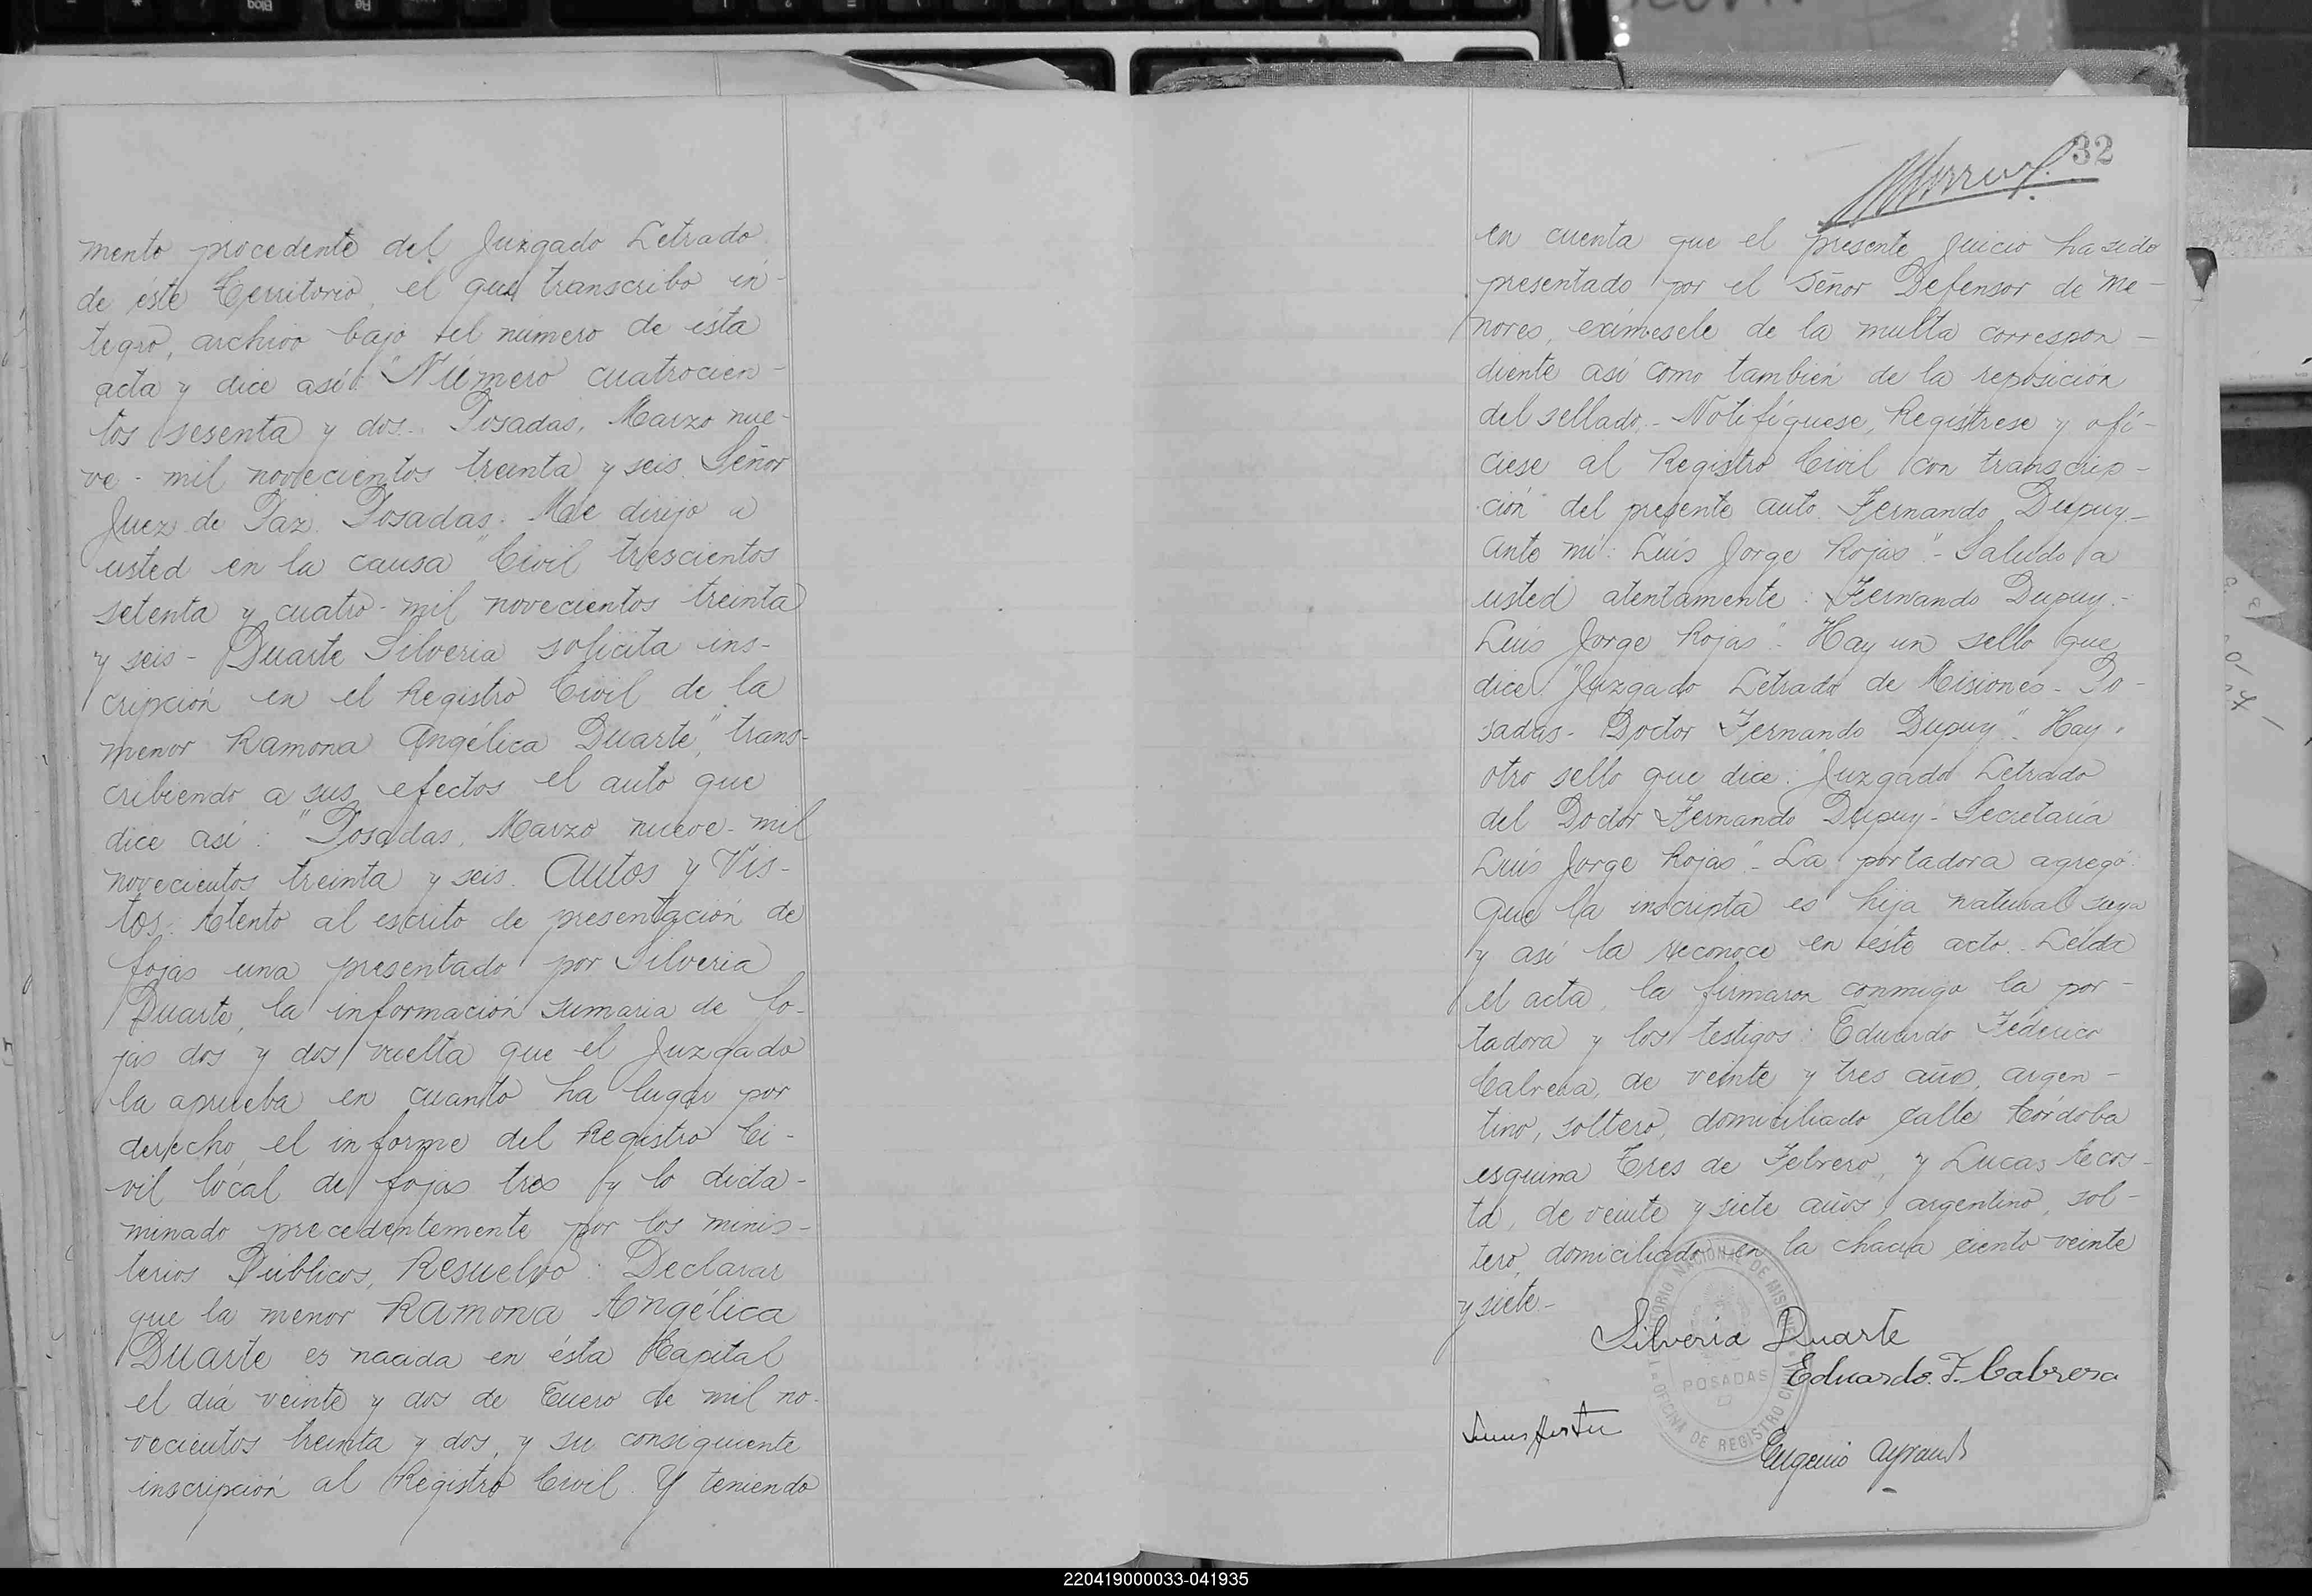 mento procedente del Juzgado Letrado
de éste Territorio, el que transcribo ín-
tegro, archivo bajo el número de ésta
acta y dice así: "Número cuatrocien-
tos sesenta y dos. Posadas, Marzo nue-
ve - mil novecientos treinta y seis. Señor
Juez de Paz. Posadas. Me dirijo a
usted en la causa "Civil trescientos
setenta y cuatro - mil novecientos treinta
y seis - Duarte Silveria solicita ins-
cripción en el Registro Civil de la
menor Ramona Angélica Duarte", trans-
cribiendo a sus efectos el auto que
dice así: "Posadas, Marzo nueve - mil
novecientos treinta y seis. Autos y Vis-
tos: Atento al escrito de presentación de
fojas una presentado por Silveria
Duarte, la información sumaria de fo-
jas dos y dos vuelta que el Juzgado
la aprueba en cuanto ha lugar por
derecho, el informe del Registro Ci-
vil local de fojas tres y lo dicta-
minado precedentemente por los minis-
terios Públicos, Resuelvo: Declarar
que la menor Ramona Angélica
Duarte es nacida en ésta Capital
el día veinte y dos de Enero de mil no-
vecientos treinta y dos, y su consiguiente
inscripción al Registro Civil. Y teniendo
32
en cuenta que el presente juicio ha sido
presentado por el Señor Defensor de Me-
nores, exímesele de la multa correspon-
diente así como también de la reposición
del sellado. - Notifíquese, Regístrese y ofí-
ciese al Registro Civil con transcrip-
ción del presente auto. Fernando Dupuy -
Ante mí: Luis Jorge Rojas" - Saludo a
usted atentamente: Fernando Dupuy. -
Luis Jorge Rojas". Hay un sello que
dice: "Juzgado Letrado de Misiones - Po-
sadas - Doctor Fernando Dupuy". Hay
otro sello que dice: "Juzgado Letrado
del Doctor Fernando Dupuy - Secretaria
Luis Jorge Rojas" - La portadora agregó
que la inscripta es hija natural suya
y así la reconoce en éste acto. Leída
el acta, la firmaron conmigo la por-
tadora y los testigos: Eduardo Federico
Cabrera, de veinte y tres años, argen-
tino, soltero, domiciliado calle Córdoba
esquina Tres de Febrero, y Lucas Acos-
ta, de veinte y siete años, argentino, sol-
tero, domiciliado en la chacra ciento veinte
y siete -
Silveria Duarte
Eduardo F. Cabrera
Eugenio
TERRITORIO NACIONAL DE MISIONES
POSADAS
OFICINA DE REGISTRO CIVIL
220419000033-041935